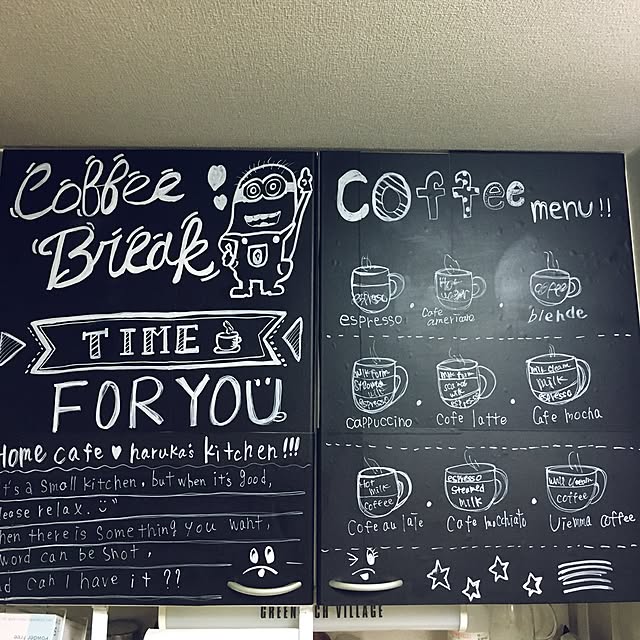 Coffee
Break
TIME
FOR YOU
Home cafe ♥ haruka's kitchen!!!
It's a small kitchen. but when it's good,
please relax.
when there is something you want,
word can be shot,
and can I have it ??
Coffee menu!!
espresso
espresso
Hot
water
Cafe
americano
coffee
blende
milk form
steamed
milk
espresso
cappuccino
milk form
steamed
milk
espresso
Cofe latte
milk cream
milk
espresso
Cafe mocha
Hot
milk
coffee
Cofe au late
espresso
steamed
milk
Cafe mocchiato
coffee
Viemma coffee
GREEN CH VILLAGE
Powder Free